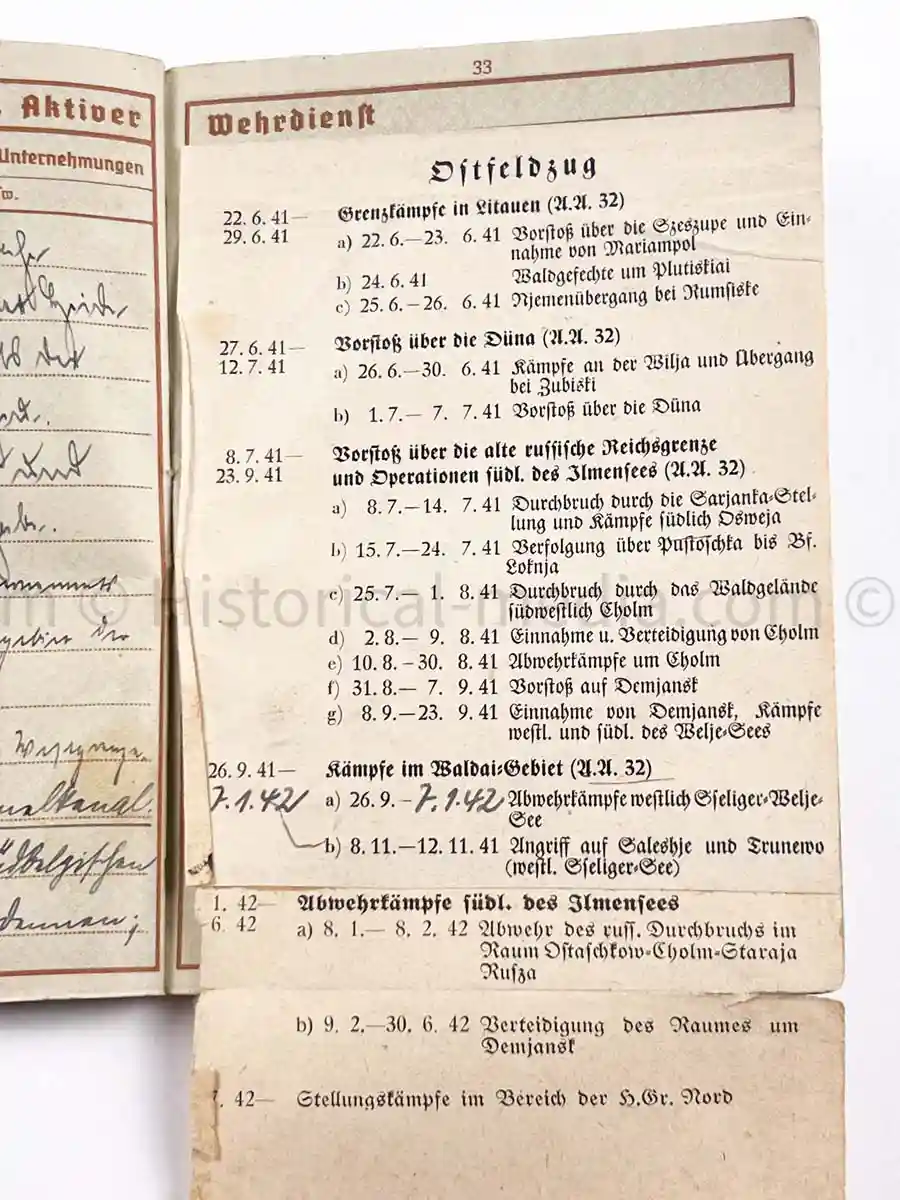 Aktiver
Unternehmungen
sw.
und
der
33
Wehrdienst
Ostfeldzug
22. 6. 41— Grenzkämpfe in Litauen (A.A. 32)
29. 6. 41 a) 22. 6.—23. 6. 41 Vorstoß über die Szeszupe und Ein-
nahme von Mariampol
b) 24. 6. 41 Waldgefechte um Plutiskiai
c) 25. 6.—26. 6. 41 Njemenübergang bei Rumsiske
27. 6. 41— Vorstoß über die Düna (A.A. 32)
12. 7. 41 a) 26. 6.—30. 6. 41 Kämpfe an der Wilja und Übergang
bei Zubiski
b) 1. 7.— 7. 7. 41 Vorstoß über die Düna
8. 7. 41— Vorstoß über die alte russische Reichsgrenze
23. 9. 41 und Operationen südl. des Ilmensees (A.A. 32)
a) 8. 7.—14. 7. 41 Durchbruch durch die Sarjanka-Stel-
lung und Kämpfe südlich Osweja
b) 15. 7.—24. 7. 41 Verfolgung über Pustoschka bis Bf.
Loknja
c) 25. 7.— 1. 8. 41 Durchbruch durch das Waldgelände
südwestlich Cholm
d) 2. 8.— 9. 8. 41 Einnahme u. Verteidigung von Cholm
e) 10. 8.—30. 8. 41 Abwehrkämpfe um Cholm
f) 31. 8.— 7. 9. 41 Vorstoß auf Demjansk
g) 8. 9.—23. 9. 41 Einnahme von Demjansk, Kämpfe
westl. und südl. des Welje-Sees
26. 9. 41— Kämpfe im Waldai-Gebiet (A.A. 32)
7.1.42 a) 26. 9. - 7.1.42 Abwehrkämpfe westlich Sseliger-Welje-
See
b) 8. 11.—12. 11. 41 Angriff auf Saleshje und Trunewo
(westl. Sseliger-See)
1. 42— Abwehrkämpfe südl. des Ilmensees
6. 42 a) 8. 1.— 8. 2. 42 Abwehr des russ. Durchbruchs im
Raum Ostaschkow-Cholm-Staraja
Russa
b) 9. 2.—30. 6. 42 Verteidigung des Raumes um
Demjansk
7. 42— Stellungskämpfe im Bereich der H.Gr. Nord
© Historical-media.com ©